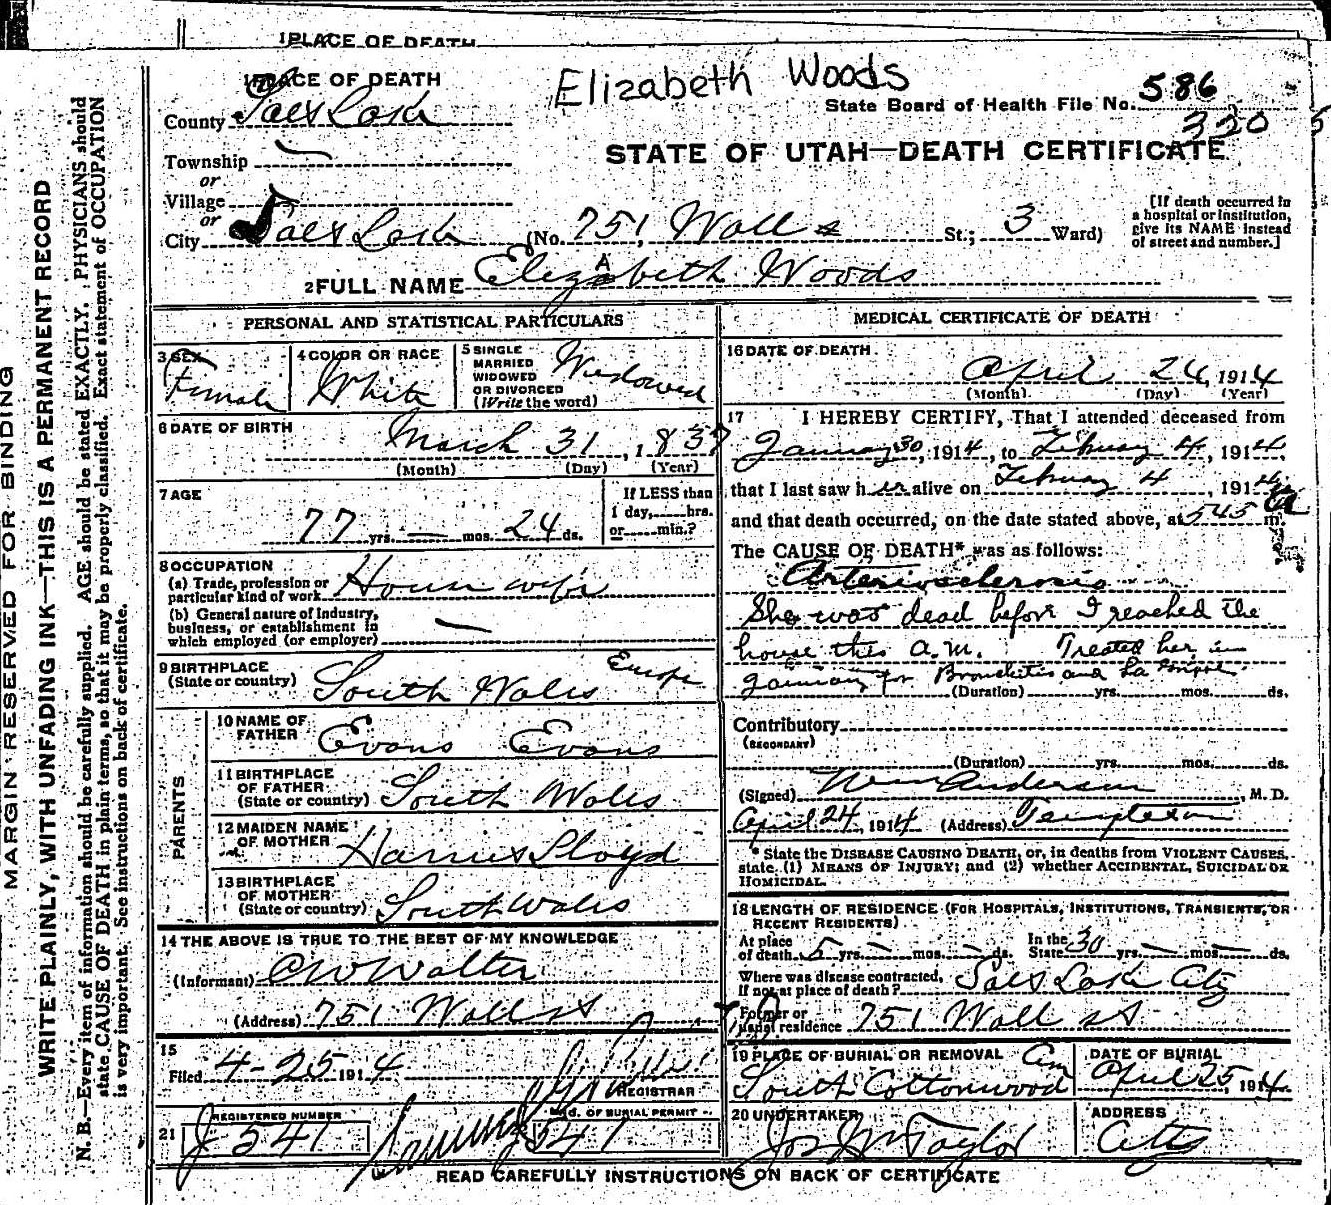 1 PLACE OF DEATH
1 PLACE OF DEATH
Elizabeth Woods
State Board of Health File No. 586
320
County Salt Lake
STATE OF UTAH—DEATH CERTIFICATE
Township —
or
Village
or
City Salt Lake (No. 751, Wall St St.; 3 Ward)
[If death occurred in
a hospital or institution,
give its NAME instead
of street and number.]
2 FULL NAME Elizabeth Woods
PERSONAL AND STATISTICAL PARTICULARS
3 SEX
Female
4 COLOR OR RACE
White
5 SINGLE
MARRIED
WIDOWED
OR DIVORCED
(Write the word)
Widowed
6 DATE OF BIRTH
March 31, 1837
(Month) (Day) (Year)
7 AGE
77 yrs. — mos. 24 ds.
If LESS than
1 day, hrs.
or min.?
8 OCCUPATION
(a) Trade, profession or
particular kind of work House wife
(b) General nature of Industry,
business, or establishment in
which employed (or employer) —
9 BIRTHPLACE
(State or country) South Wales Europe
PARENTS
10 NAME OF
FATHER Evans Evans
11 BIRTHPLACE
OF FATHER
(State or country) South Wales
12 MAIDEN NAME
OF MOTHER Lloyd
13 BIRTHPLACE
OF MOTHER
(State or country) South Wales
14 THE ABOVE IS TRUE TO THE BEST OF MY KNOWLEDGE
(Informant) C W Walter
(Address) 751 Wall St
15
Filed 4-25 1914
REGISTRAR
21
REGISTERED NUMBER
J 541
OF BURIAL PERMIT
541
MEDICAL CERTIFICATE OF DEATH
16 DATE OF DEATH
April 24, 1914
(Month) (Day) (Year)
17 I HEREBY CERTIFY, That I attended deceased from
January 30, 1914, to February 4, 1914,
that I last saw her alive on February 4, 1914,
and that death occurred, on the date stated above, at 545 a m.
The CAUSE OF DEATH* was as follows:
Arteriosclerosis
She was dead before I reached the
house this a.m. Treated her in
January for Bronchitis and La Grippe.
(Duration) yrs. mos. ds.
Contributory
(SECONDARY)
(Duration) yrs. mos. ds.
(Signed) Wm Anderson, M. D.
April 24, 1914 (Address) Templeton
* State the DISEASE CAUSING DEATH, or, in deaths from VIOLENT CAUSES,
state (1) MEANS OF INJURY; and (2) whether ACCIDENTAL, SUICIDAL OR
HOMICIDAL.
18 LENGTH OF RESIDENCE (FOR HOSPITALS, INSTITUTIONS, TRANSIENTS, OR
RECENT RESIDENTS)
At place
of death 5 yrs. — mos. — ds.
In the
State 30 yrs. — mos. — ds.
Where was disease contracted,
if not at place of death? Salt Lake City
Former or
usual residence 751 Wall St
19 PLACE OF BURIAL OR REMOVAL
South Cottonwood Cem
DATE OF BURIAL
April 25 1914
20 UNDERTAKER
Jos Wm Taylor
ADDRESS
City
READ CAREFULLY INSTRUCTIONS ON BACK OF CERTIFICATE
MARGIN RESERVED FOR BINDING
WRITE PLAINLY, WITH UNFADING INK—THIS IS A PERMANENT RECORD
N. B.—Every item of information should be carefully supplied. AGE should be stated EXACTLY. PHYSICIANS should
state CAUSE OF DEATH in plain terms, so that it may be properly classified. Exact statement of OCCUPATION
is very important. See instructions on back of certificate.